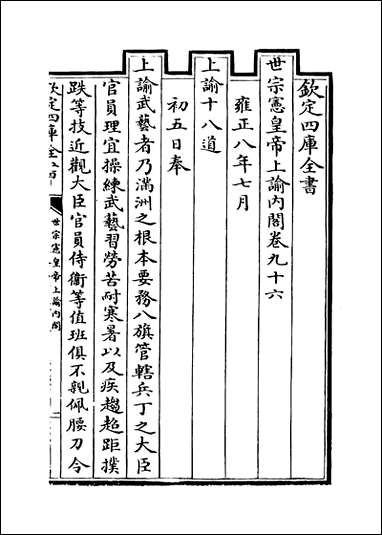 欽定四庫全書
世宗憲皇帝上諭內閣卷九十六
雍正八年七月
上諭十八道
初五日奉
上諭武藝者乃滿洲之根本要務八旗管轄兵丁之大臣
官員理宜操練武藝習勞苦耐寒暑以及疾趨超距撲
跌等技近觀大臣官員侍衛等值班俱不親佩腰刀今
欽定四庫全書
世宗憲皇帝上諭內閣